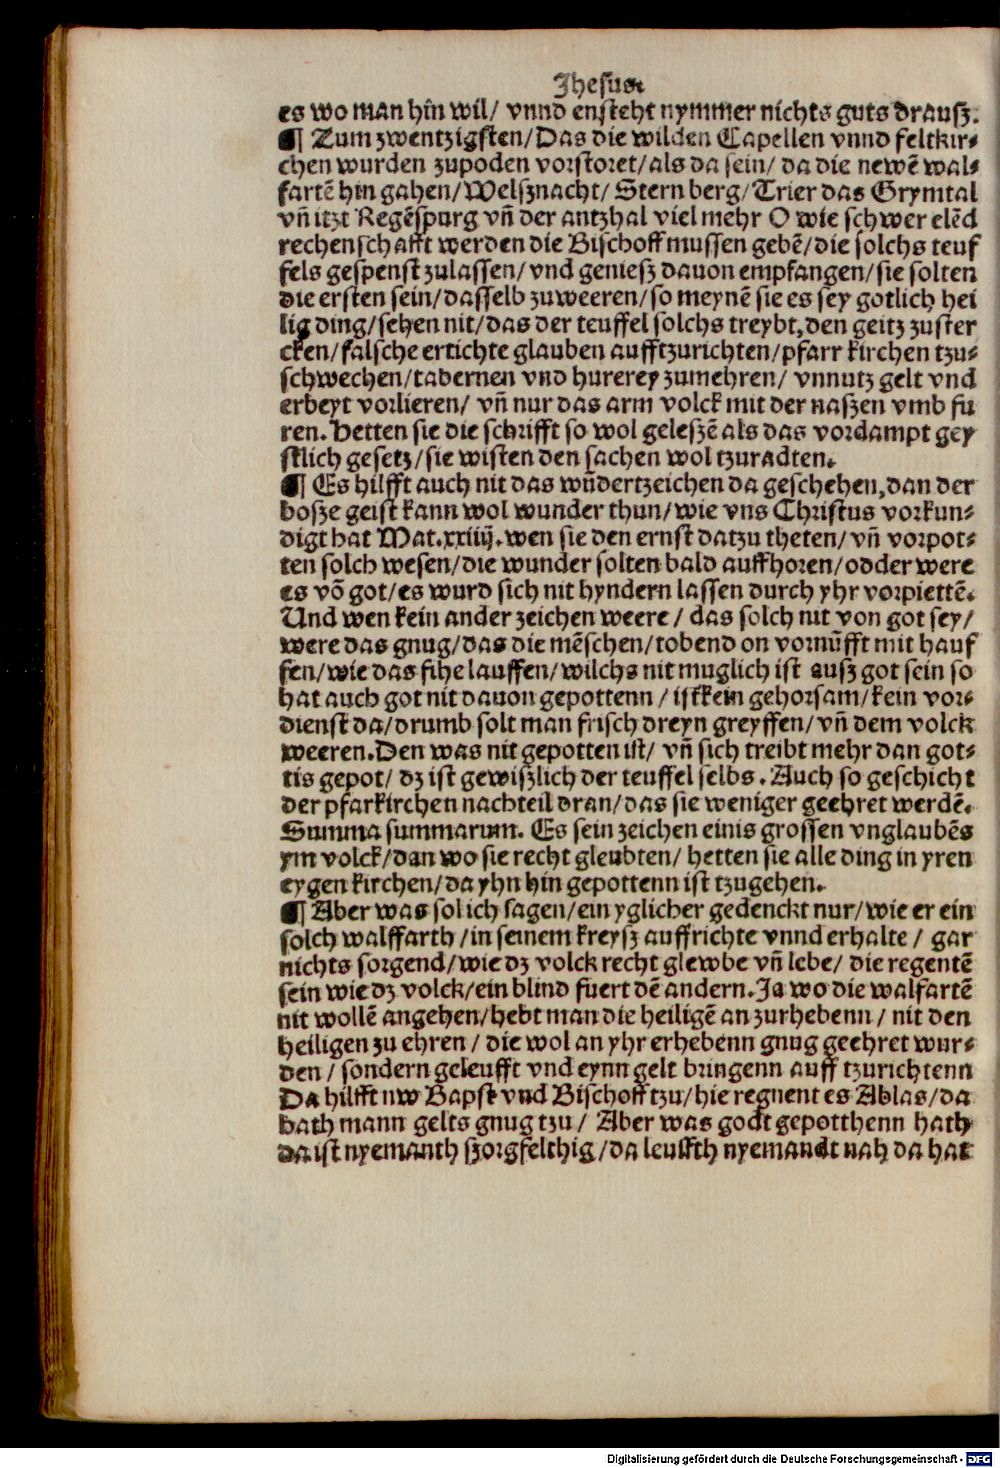 Jhesus
es wo man hin wil/ vnnd ensteht nymmer nichts guts drausz.
¶ Zum zwentzigsten/Das die wilden Capellen vnnd feltkir⸗
chen wurden zupoden vorstoret/als da sein/ da die newē wal⸗
fartē hin gahen/Welsznacht/ Stern berg/Trier das Grymtal
vñ itzt Regēspurg vñ der antzhal viel mehr O wie schwer elēd
rechenschafft werden die Bischoff mussen gebē/die solchs teuf
fels gespenst zulassen/vnd geniesz dauon empfangen/sie solten
die ersten sein/dasselb zuweeren/so meynē sie es sey gotlich hei
lig ding/sehen nit/das der teuffel solchs treybt,den geitz zuster
cken/falsche ertichte glauben aufftzurichten/pfarr kirchen tzu⸗
schwechen/tabernen vnd hurerey zumehren/ vnnutz gelt vnd
erbeyt vorlieren/ vñ nur das arm volck mit der naszen vmb fu
ren. Hetten sie die schrifft so wol geleszē als das vordampt gey
stlich gesetz/sie wisten den sachen wol tzuradten.
¶ Es hilfft auch nit das wūdertzeichen da geschehen,dan der
bosze geist kann wol wunder thun/wie vns Christus vorkun⸗
digt hat Mat.xxiiij.wen sie den ernst datzu theten/ vñ vorpot⸗
ten solch wesen/die wunder solten bald auffhoren/odder were
es vō got/es wurd sich nit hyndern lassen durch yhr vorpiettē.
Und wen kein ander zeichen weere/ das solch nit von got sey/
were das gnug/das die mēschen/tobend on vornūfft mit hauf
fen/wie das fihe lauffen/wilchs nit muglich ist ausz got sein so
hat auch got nit dauon gepottenn/ist kein gehorsam/kein vor⸗
dienst da/drumb solt man frisch dreyn greyffen/vñ dem volck
weeren.Den was nit gepotten ist/ vñ sich treibt mehr dan got⸗
tis gepot/ dz ist gewiszlich der teuffel selbs. Auch so geschicht
der pfarkirchen nachteil dran/das sie weniger geehret werdē.
Summa summarum. Es sein zeichen einis grossen vnglaubēs
ym volck/dan wo sie recht gleubten/ hetten sie alle ding in yren
eygen kirchen/da yhn hin gepottenn ist tzugehen.
¶ Aber was sol ich sagen/ein yglicher gedenckt nur/wie er ein
solch walffarth/in seinem kreysz auffrichte vnnd erhalte/ gar
nichts sorgend/wie dz volck recht glewbe vñ lebe/ die regentē
sein wie dz volck/ein blind fuert dē andern.Ja wo die walfartē
nit wollē angehen/hebt man die heiligē an zurhebenn/ nit den
heiligen zu ehren/ die wol an yhr erhebenn gnug geehret wur⸗
den/ sondern geleufft vnd eynn gelt bringenn auff tzurichtenn
Da hilfft nw Bapst vnd Bischoff tzu/hie regnent es Ablas/da
hath mann gelts gnug tzu/ Aber was godt gepotthenn hath
da ist nyemanth szorgfelthig/da leuffth nyemandt nah da hat
Digitalisierung gefördert durch die Deutsche Forschungsgemeinschaft - DFG